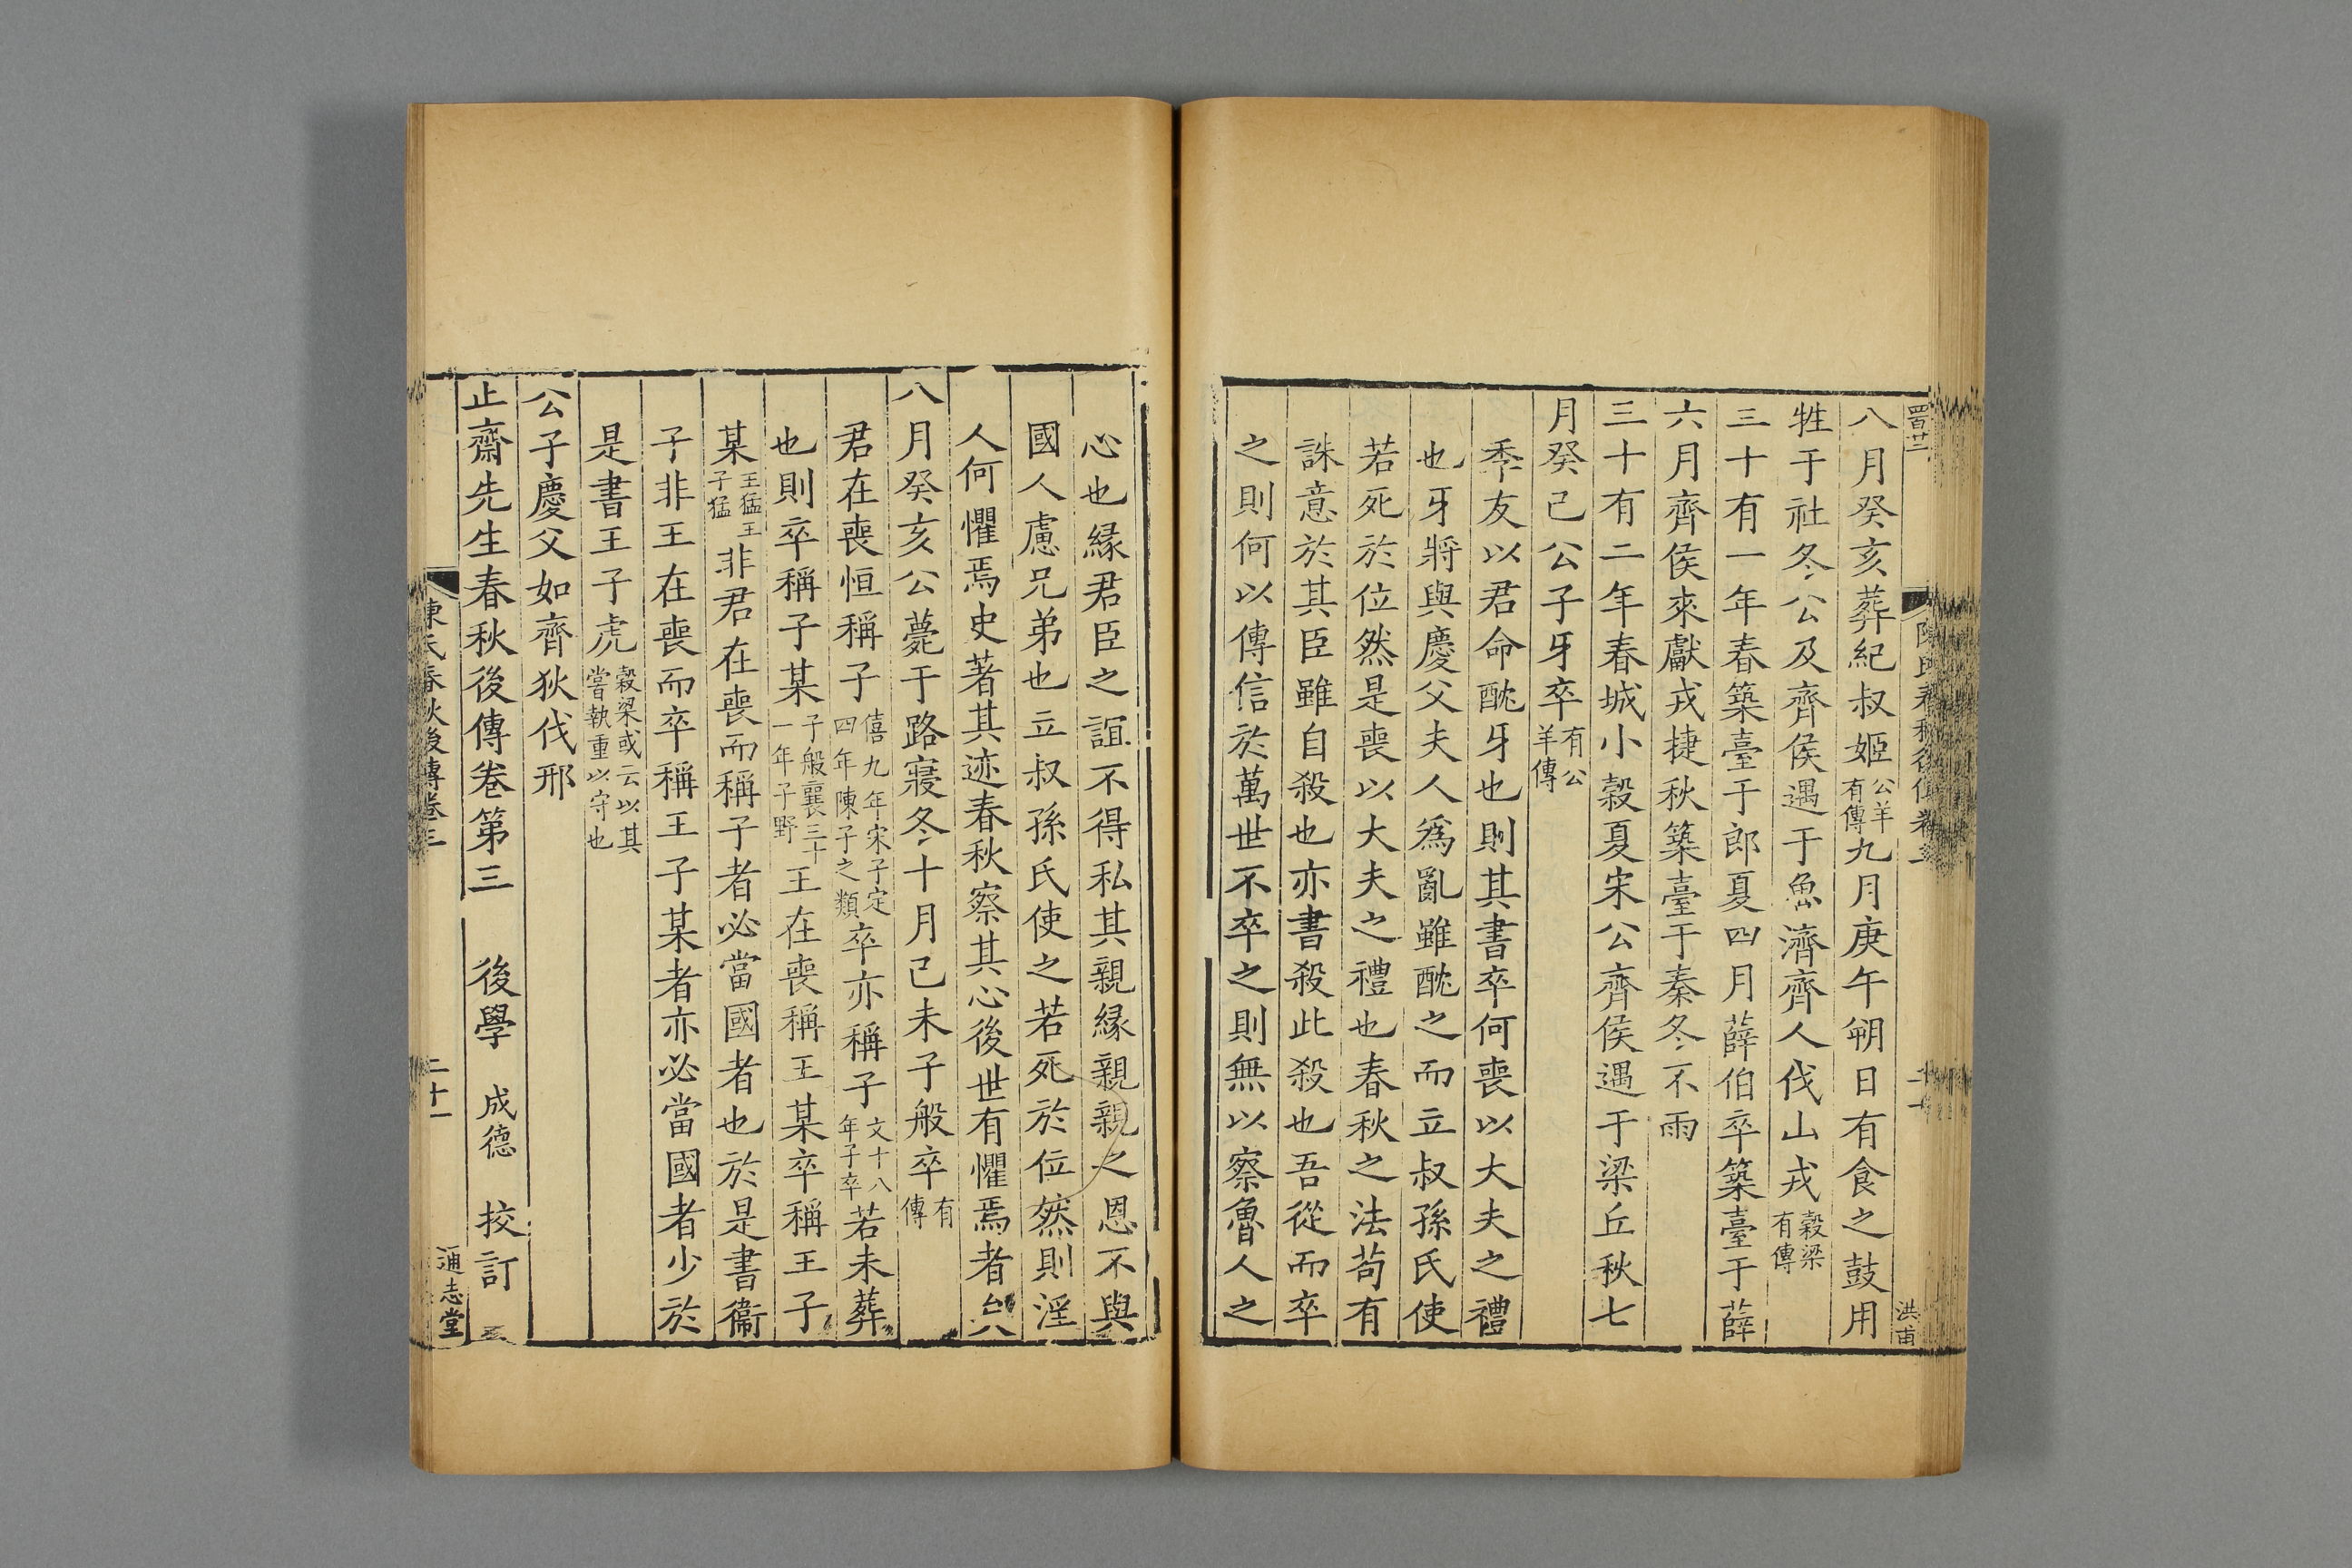 八月癸亥葬紀叔姬公羊有傳九月庚午朔日有食之鼓用
牲于社冬公及齊侯遇于魯濟齊人伐山戎穀梁有傳
三十有一年春築臺于郎夏四月薛伯卒築臺于薛
六月齊侯來獻戎捷秋築臺于秦冬不雨
三十有二年春城小穀夏宋公齊侯遇于梁丘秋七
月癸巳公子牙卒有公羊傳
季友以君命酖牙也則其書卒何喪以大夫之禮
也牙將與慶父夫人爲亂雖酖之而立叔孫氏使
若死於位然是喪以大夫之禮也春秋之法苟有
誅意於其臣雖自殺也亦書殺此殺也吾從而卒
之則何以傳信於萬世不卒之則無以察魯人之
心也緣君臣之誼不得私其親緣親親之恩不與
國人慮兄弟也立叔孫氏使之若死於位然則淫
人何懼焉史著其迹春秋察其心後世有懼焉者矣
八月癸亥公薨于路寢冬十月己未子般卒有傳
君在喪恒稱子僖九年宋子定四年陳子之類卒亦稱子文十八年子卒若未葬
也則卒稱子某子般襄三十一年子野王在喪稱王某卒稱王子
某王猛王子猛非君在喪而稱子者必當國者也於是書衞
子非王在喪而卒稱王子某者亦必當國者少於
是書王子虎穀梁或云以其嘗執重以守也
公子慶父如齊狄伐邢
止齋先生春秋後傳卷第三 後學 成德 挍訂
陳氏春秋後傳卷三 二十一 通志堂
洪甫